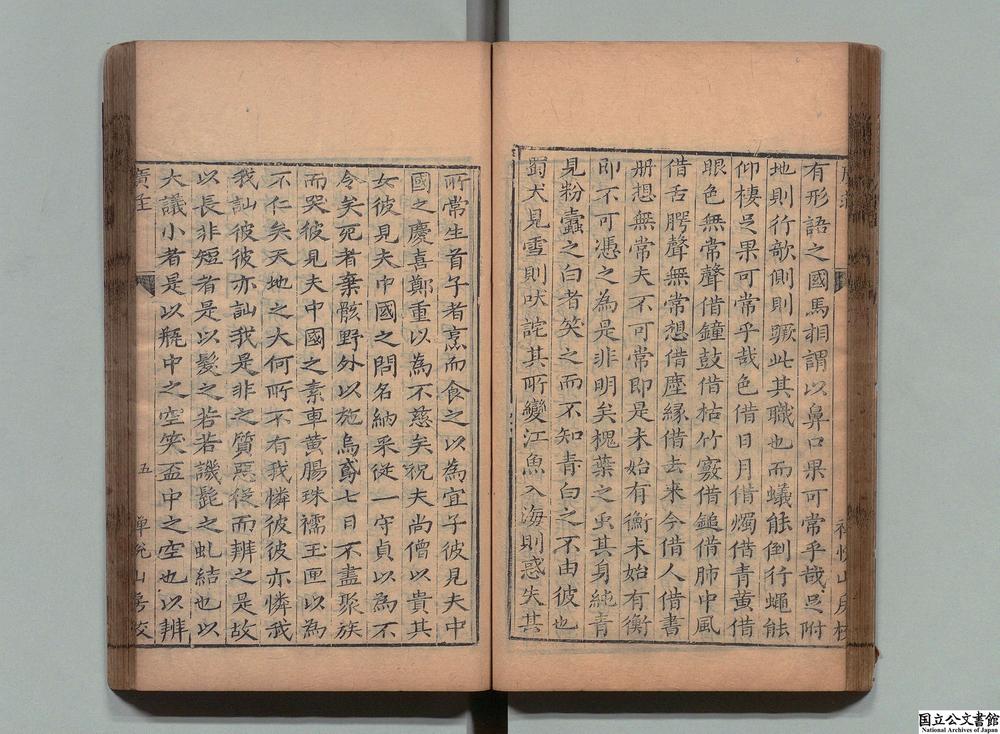 有形語之國馬相謂以鼻口果可常乎哉足附
地則行欹側則蹶此其職也而蟻能倒行蠅能
仰棲足果可常乎哉色借日月借燭借青黄借
眼色無常聲借鐘鼓借枯竹竅借鎚借肺中風
借舌腭聲無常想借塵縁借去来今借人借書
册想無常夫不可常即是未始有衡未始有衡
即不可憑之為是非明矣槐葉之虫其身純青
見粉蠧之白者笑之而不知青白之不由彼也
蜀犬見雪則吠詫其所變江魚入海則惑失其
所常生首子者烹而食之以為宜子彼見夫中
國之慶喜鄭重以為不慈矣祝夫尚僧以貴其
女彼見夫中國之問名納采従一守貞以為不
令矣死者棄骸野外以施烏鳶七日不盡聚族
而哭彼見夫中國之素車黄腸珠襦玉匣以為
不仁矣天地之大何所不有我憐彼彼亦憐我
我訕彼彼亦訕我是非之質惡従而辨之是故
以長非短者是以髪之若若譏髭之虬結也以
大議小者是以瓶中之空笑盃中之空也以辨
廣荘
五
禅悦山房校
国立公文書館
National Archives of Japan